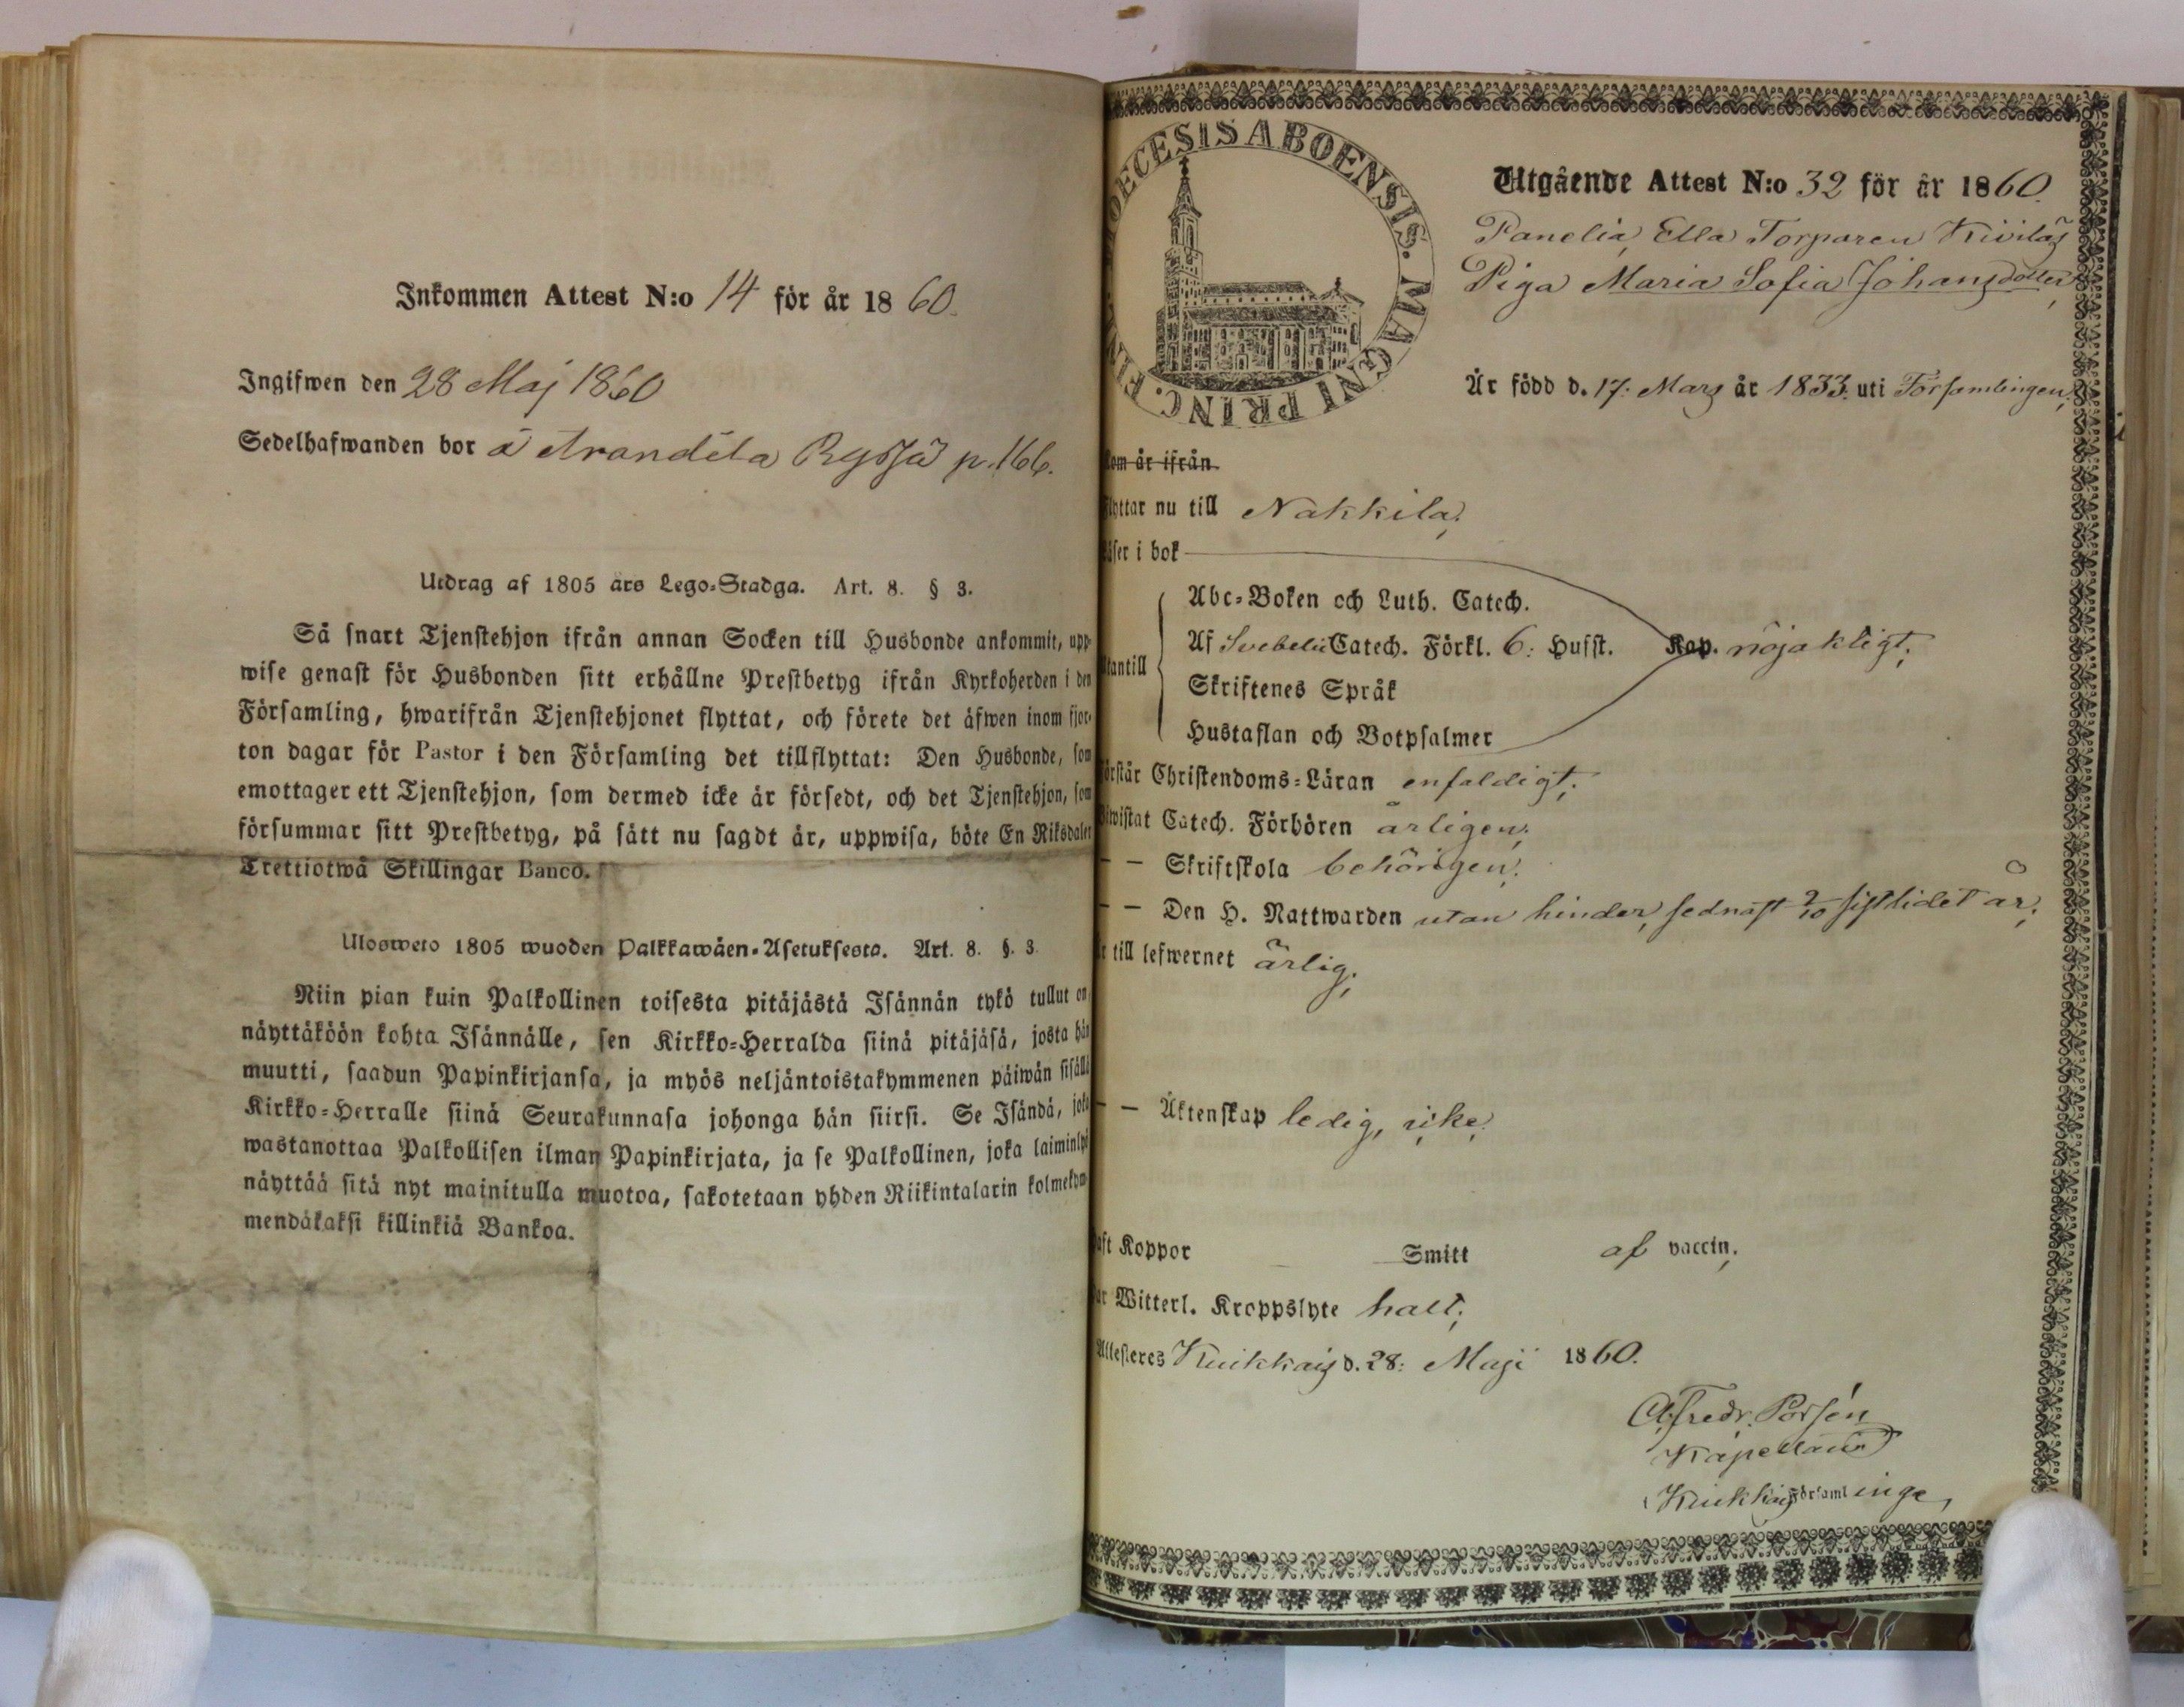 Inkommen Attest N:o 14 för år 1860.
Ingifwen den 28 Maj 1860
Sedelhafwanden bor å Arandila Ryssä p. 166.
Utdrag af 1805 års Lego-Stadga. Art. 8. § 3.
Så snart Tjenstehjon ifrån annan Socken till Husbonde ankommit, upp-
wise genast för Husbonden sitt erhållne Prestbetyg ifrån Kyrkoherden i den
Församling, hwarifrån Tjenstehjonet flyttat, och förete det äfwen inom fjor-
ton dagar för Pastor i den Församling det tillflyttat: Den Husbonde, som
emottager ett Tjenstehjon, som dermed icke är försedt, och det Tjenstehjon, som
försummar sitt Prestbetyg, på sätt nu sagdt är, uppwisa, böte En Riksdaler
Trettiotwå Skillingar Banco.
Ulosweto 1805 wuoden Palkkawäen-Asetuksesta. Art. 8. §. 3.
Niin pian kuin Palkollinen toisesta pitäjästä Isännän tykö tullut on
näyttäköön kohta Isännälle, sen Kirkko-Herralda siinä pitäjäsä, josta hän
muutti, saadun Papinkirjansa, ja myös neljäntoistakymmenen päiwän sisällä
Kirkko-Herralle siinä Seurakunnasa johonga hän siirsi. Se Isändä, joka
wastanottaa Palkollisen ilman Papinkirjata, ja se Palkollinen, joka laiminlyö
näyttää sitä nyt mainitulla muotoa, sakotetaan yhden Riikintalarin kolmekym-
mendäkaksi killinkiä Bankoa.
DIOECESIS ABOENSIS. MAGNI PRINC. FIN
Utgående Attest N:o 32 för år 1860.
Panelia, Ella Torparen Kiviläs
Piga Maria Sofia Johansdotter,
Är född d. 17. Mars år 1833. uti Församlingen,
Kom år ifrån
Flyttar nu till Nakkila;
Läser i bok
Abc-Boken och Luth. Catech.
Af Svebelii Catech. Förkl. 6: Hufst. Kap. nöjaktigt;
Utantill
Skriftenes Språk
Hustaflan och Botpsalmer
Förstår Christendoms-Läran enfaldigt;
Biwistat Catech. Förhören årligen;
— — Skriftskola behörigen;
— — Den H. Nattwarden utan hinder, sednast 2/10 sistlidet år;
Är till lefwernet ärlig;
— — Äktenskap ledig, icke
Haft Koppor Smitt af vaccin;
Har Witterl. Kroppslyte halt;
Attesteres Kiukkais d. 28: Maji 1860.
A. Fredr. Porsén
Kapellan
i Kiukkais Församlinge,